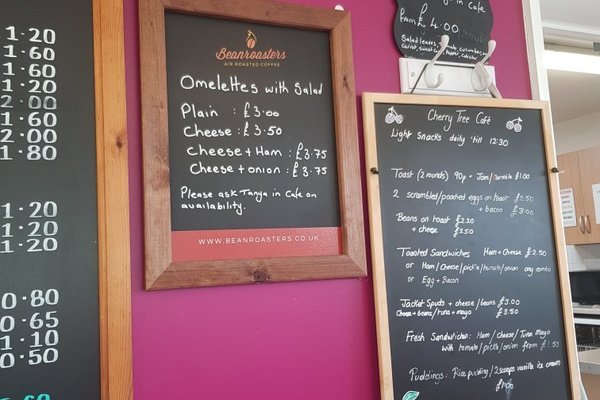 1.20
1.60
1.60
1.60
2.00
1.60
2.00
1.80
1.20
2.20
1.20
0.80
0.65
0.50
Beanrosters
AIR ROASTED COFFEE
Omelettes with Salad
Plain : £3.00
Cheese : £3.50
Cheese + Ham : £3.75
Cheese + onion : £3.75
Please ask Tanya in Cafe on
availability.
WWW.BEANROASTERS.CO.UK
in Cafe
From £4.00
Salad leaves
Cherry Tree Cafe
Light Snacks daily 'till 12:30
Toast (2 rounds) 90p + Jam/ 1.00
2 scrambled/poached eggs on toast £2.50
+ bacon £3.00
Beans on toast £2.20
+ cheese £2.50
Toasted Sandwiches Ham + Cheese £2.50
or Ham/Cheese/pickle/tomato/onion any combo
or Egg + Bacon
Jacket Spuds + cheese/beans £3.00
Cheese + beans/tuna + mayo £3.50
Fresh Sandwiches: Ham/Cheese/Tuna Mayo
with tomato/pickle/onion from £1.50
Puddings: Rice pudding/2 scoops vanilla ice cream